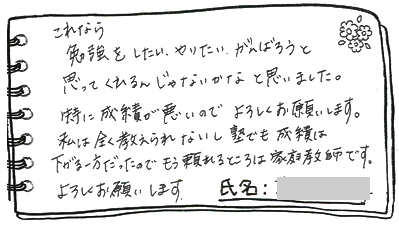 これなら
勉強をしたい、やりたい、がんばろうと
思ってくれるんじゃないかなと思いました。
特に成績が悪いのでよろしくお願いします。
私は全く教えられないし塾でも成績は
下がる一方だったのでもう頼れるところは家庭教師です。
よろしくお願いします 氏名: